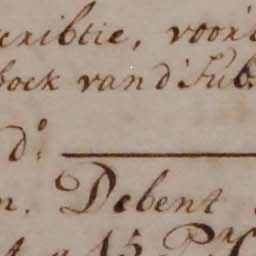 cribtie, voor
boek van d' Sub
do:
n. Debent
15 P